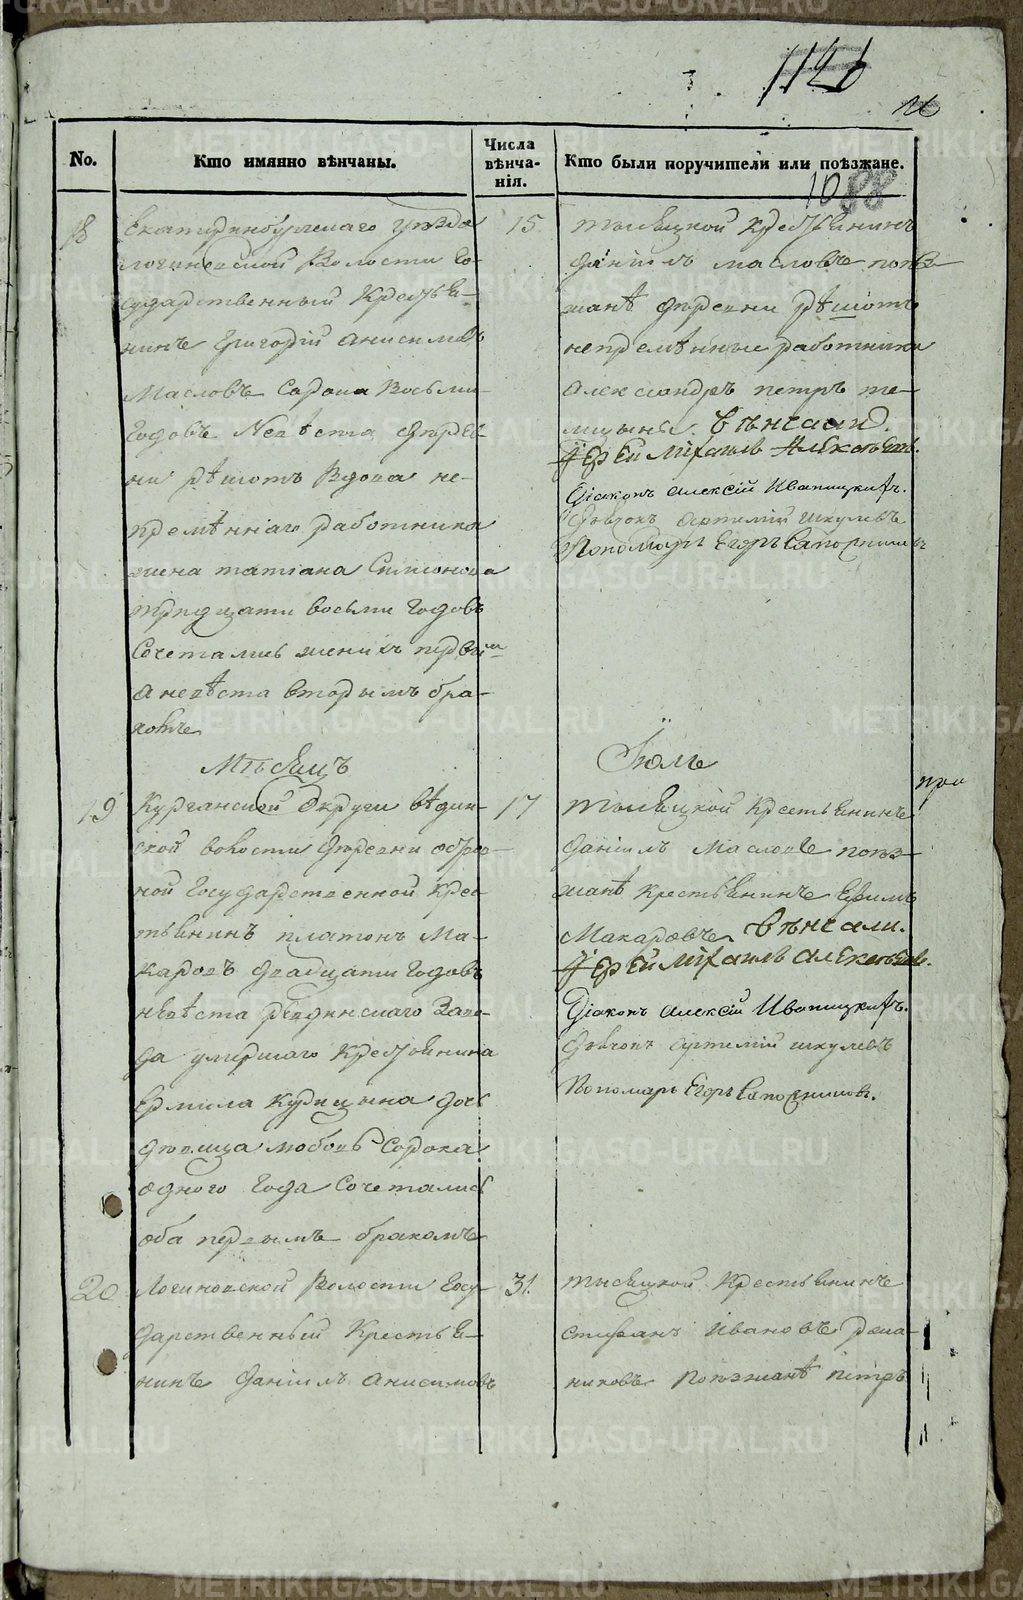 1126
1088
No.
Кто имянно вѣнчаны.
Числа вѣнча-нія.
Кто были поручители или поѣзжане.
18
Екатеринбургскаго уѣзда
Логиновской Волости Го-
сударственный Крестья-
нинъ Григорій Анисимовъ
Масловъ сорока восьми
Годовъ Невѣста дерев-
ни рѣшотъ Вдова не-
премѣннаго работника
жена татіана Симионова
тридцати восьми годовъ
Сочетались женихъ первым
а невѣста вторымъ бра-
комъ
15
тысяцкой Крестьянинъ
Даніилъ масловъ поѣз-
жанѣ деревни рѣшотъ
непремѣнные работники
Александръ петръ те-
мицыны. вѣнчали.
Іерей Михаилъ Алексѣевъ.
Діаконъ Алексій Иваницкихъ.
Дьячокъ Артемій шкулевъ
Пономарь Егоръ Сапожниковъ
Мѣсяцъ
Іюль
19
Курганской Округи
волости деревни
ной Государственной Крес-
тьянинъ платонъ Ма-
каровъ двадцати Годовъ
невѣста Ревдинскаго Заво-
да умершаго Крестьянина
Ермила Курицына дочь
девица любовь Сорока
одного Года Сочетались
оба первымъ бракомъ
17
тысяцкой Крестьянинъ
Даніилъ Масловъ поѣз-
жанѣ крестьянинъ Ефимъ
Макаровъ вѣнчали.
Іерей Михаилъ Алексѣевъ.
Діаконъ Алексій Иваницкихъ.
Дьячокъ Артемій шкулевъ
Пономарь Егоръ Сапожниковъ.
при
20
Логиновской Волости Госу-
дарственный Крестья-
нинъ Даніилъ Анисимовъ
31.
тысяцкой Крестьянинъ
Стефанъ Ивановъ рома-
никовъ Поѣзжанѣ петръ
METRIKI.GASO-URAL.RU